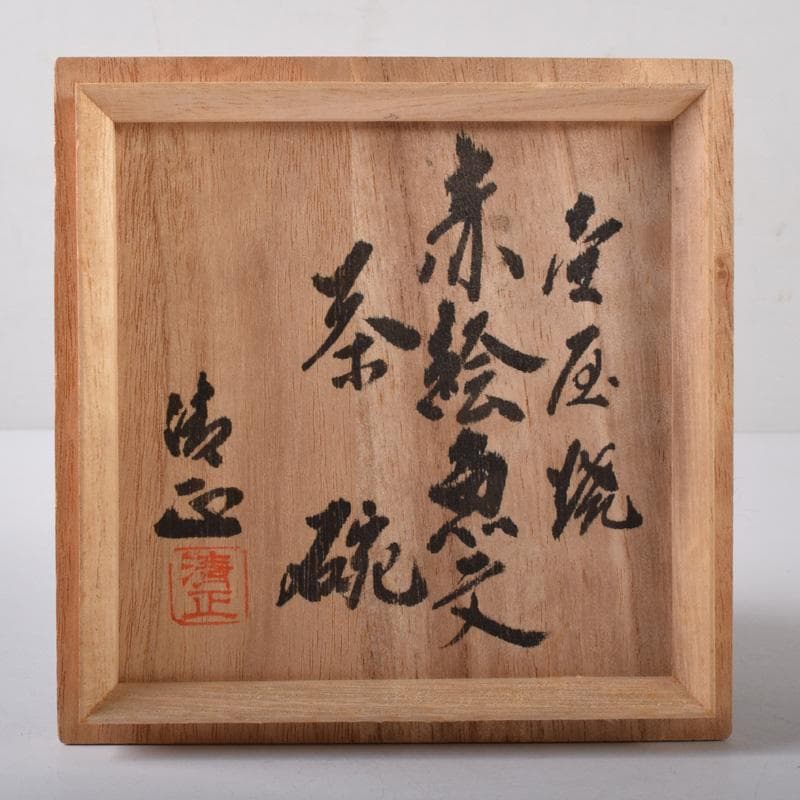 壺屋焼
赤絵魚文
茶碗
清正
清正